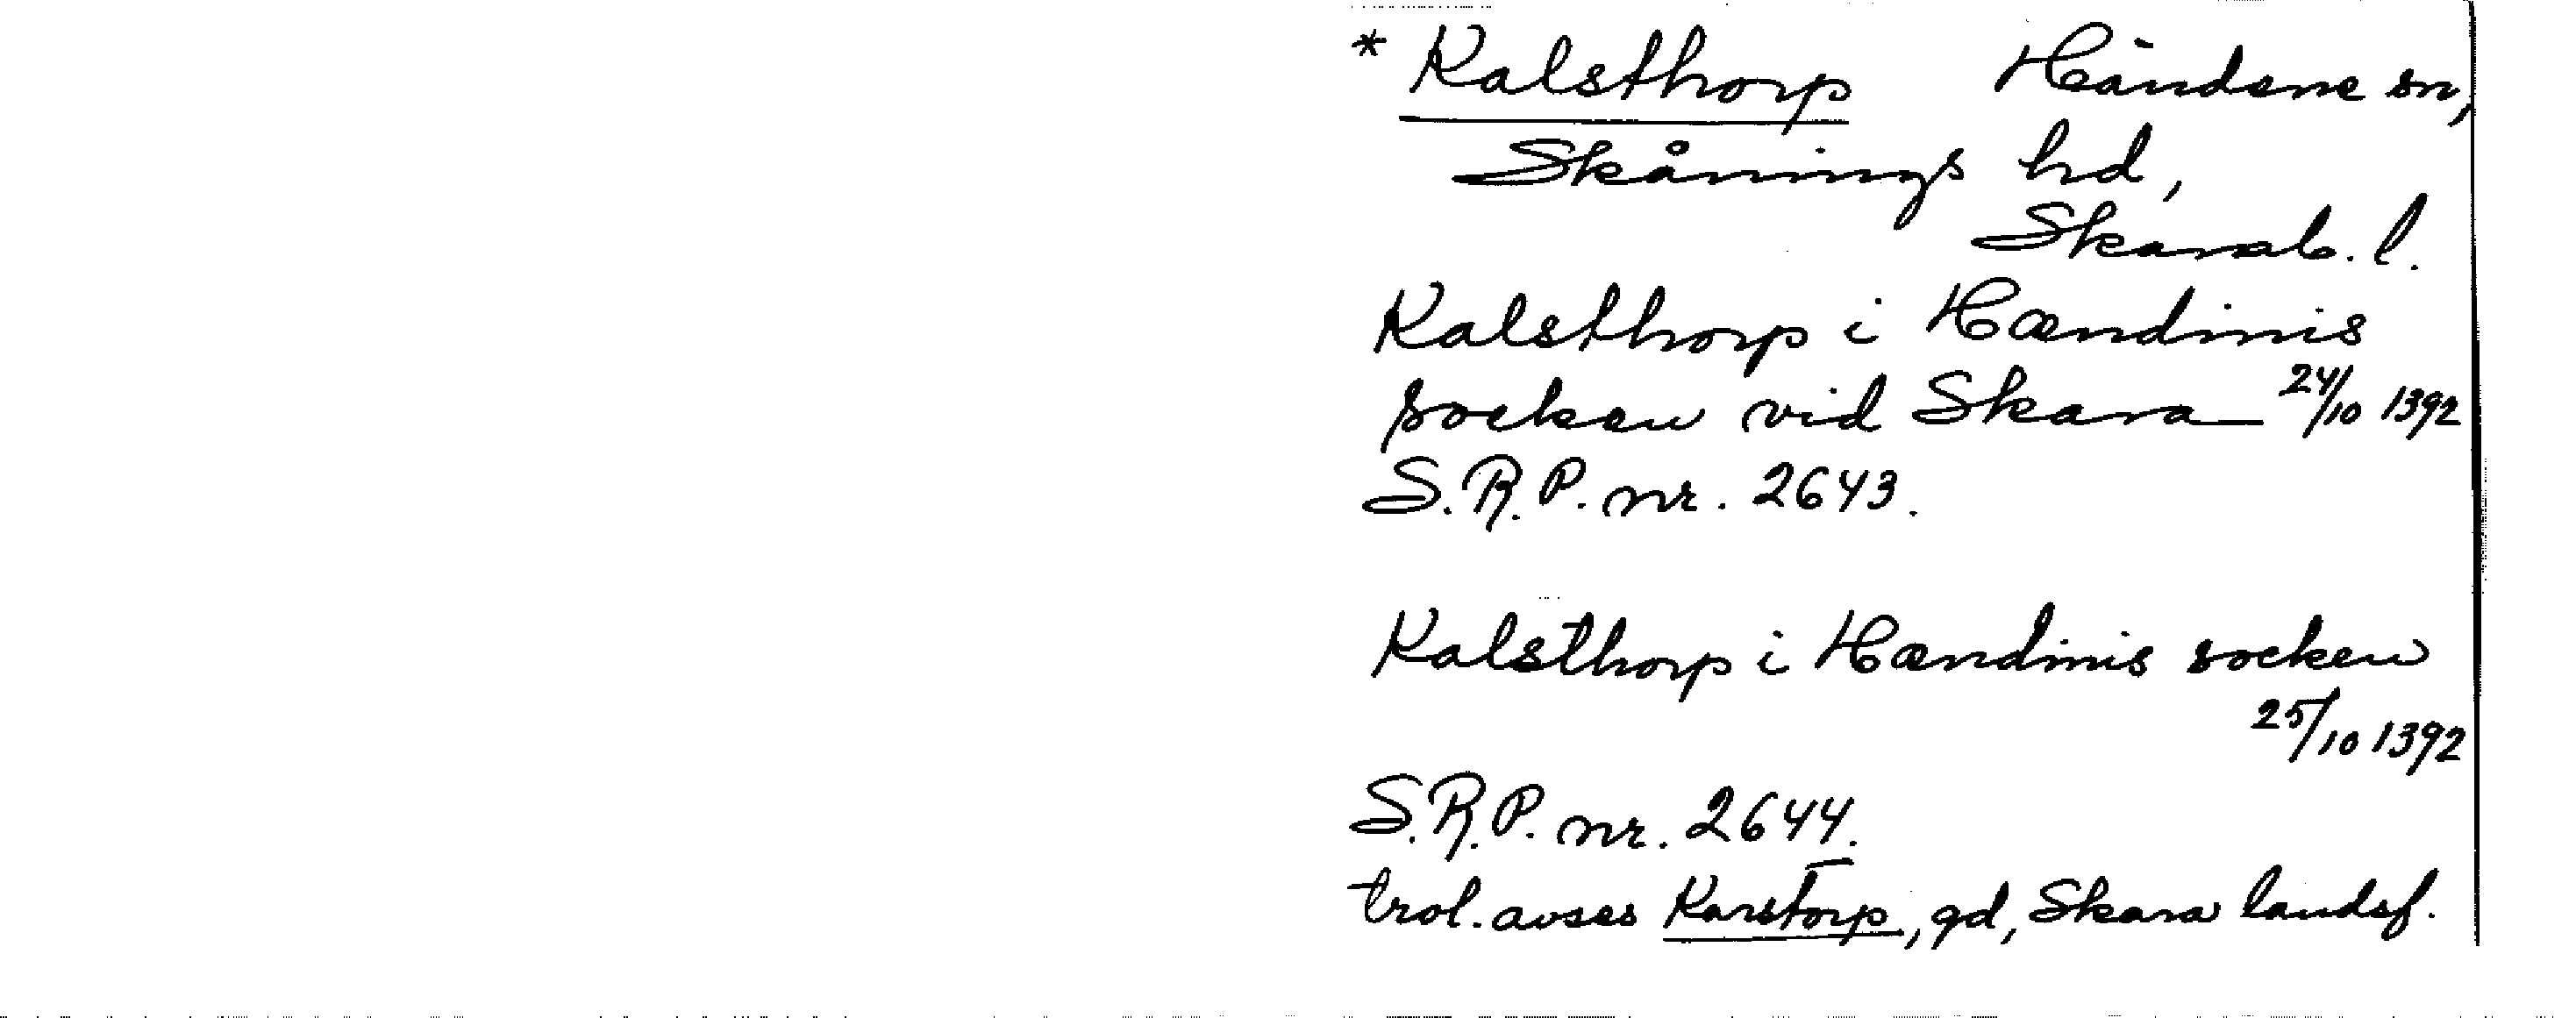 * Kalsthorp Håndene sn,
Skånings hd,
Skarab. l.
Kalsthorp i Hændinis
socken vid Skara 24/10 1392
S.R.P. nr. 2643.
Kalsthorp i Hændinis socken
25/10 1392
S.R.P. nr. 2644.
trol. avses Karstorp, gd, Skara landsf.